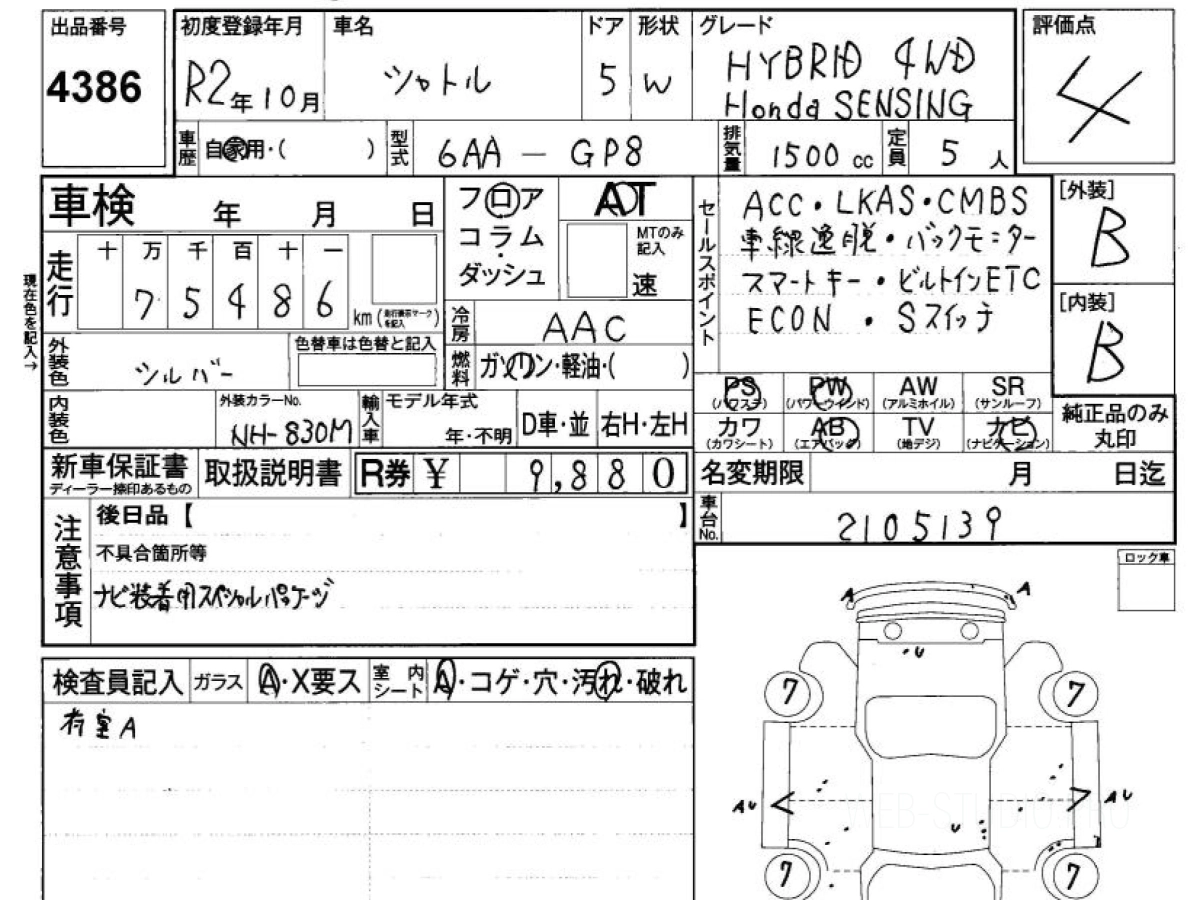 出品番号
4386
初度登録年月
R2年10月
車名
シャトル
ドア
5
形状
W
グレード
HYBRID 4WD
Honda SENSING
評価点
4
車歴
自家用・( )
型式
6AA - GP8
排気量
1500 cc
定員
5 人
車検 年 月 日
走行
十 万 千 百 十 一
7 5 4 8 6
km(走行表示マークを記入)
現在色を記入→
フロア
コラム
・
ダッシュ
AT
MTのみ
記入
速
セールスポイント
ACC・LKAS・CMBS
車線逸脱・バックモニター
スマートキー・ビルトインETC
ECON ・ Sスイッチ
[外装]
B
[内装]
B
外装色
シルバー
色替車は色替と記入
冷房
AAC
燃料
ガソリン・軽油・( )
PS
(パワステ)
PW
(パワーウインド)
AW
(アルミホイル)
SR
(サンルーフ)
カワ
(カワシート)
AB
(エアバッグ)
TV
(地デジ)
ナビ
(ナビゲーション)
純正品のみ
丸印
内装色
外装カラーNo.
NH-830M
輸入車
モデル年式
年・不明
D車・並
右H・左H
新車保証書
ディーラー捺印あるもの
取扱説明書
R券 ¥ 9,880
名変期限 月 日迄
車台No.
2105139
注意事項
後日品【 】
不具合箇所等
ナビ装着用スペシャルパッケージ
ロック車
検査員記入
ガラス
A・X要ス
室内シート
A・コゲ・穴・汚れ・破れ
荷室A
A
A
・U
7
7
AU
AU
U
7
7
WEB-STUDIO.PRO